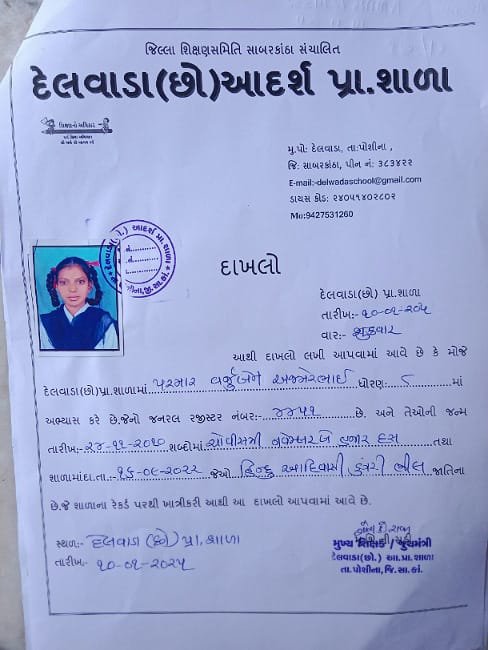 જિલ્લા શિક્ષણસમિતિ સાબરકાંઠા સંચાલિત
દેલવાડા(છો)આદર્શ પ્રા.શાળા
મુ.પો: દેલવાડા, તા:પોશીના ,
જિ: સાબરકાંઠા, પીન નં: ૩૮૩૪૨૨
E-mail:-delwadaschool@gmail.com
ડાયસ કોડ: ૨૪૦૫૧૪૦૨૮૦૨
Mo:9427531260
દાખલો
દેલવાડા(છો) પ્રા.શાળા
તારીખ:- ૧૦-૦૧-૨૦૨૫
વાર:- શુક્રવાર
આથી દાખલો લખી આપવામાં આવે છે કે મોજે
દેલવાડા(છો)પ્રા.શાળામાં પરમાર અજમેરભાઈ ધોરણ: ૮ માં
અભ્યાસ કરે છે.જેનો જનરલ રજીસ્ટર નંબર:- ૪૪૫૧ છે. અને તેઓની જન્મ
તારીખ:- ૨૪-૧૧-૨૦૧૦ શબ્દોમાં ચોવીસમી નવેમ્બર બે હજાર દસ તથા
શાળામાંદા.તા.- ૧૬-૦૯-૨૦૨૨ જેઓ હિન્દુ આદિવાસી ડુંગરી ભીલ જાતિના
છે.જે શાળાના રેકર્ડ પરથી ખાત્રીકરી આથી આ દાખલો આપવામાં આવે છે.
સ્થળ:- દેલવાડા (છો) પ્રા. શાળા
તારીખ:- ૧૦-૦૧-૨૦૨૫
મુખ્ય શિક્ષક /
દેલવાડા(છો.) આ.પ્રા.શાળા
તા.પોશીના, જિ.સા.કાં.